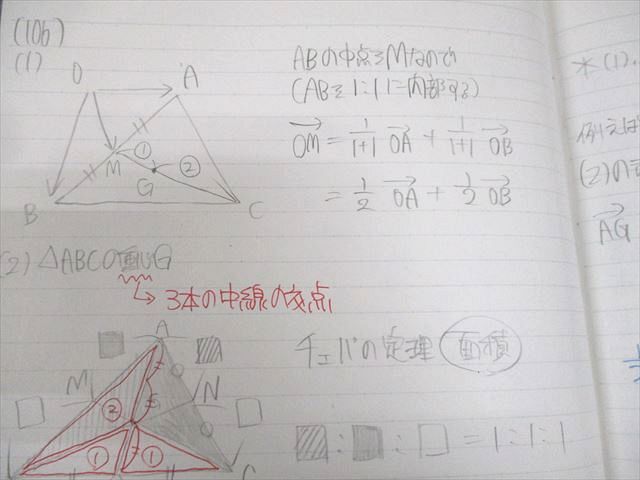 (106)
(1)
O A
M ① ②
G
B C
ABの中点をMなので
(ABを1:1に内部する)
OM = 1/1+1 OA + 1/1+1 OB
= 1/2 OA + 1/2 OB
(2) △ABCの重心G
→ 3本の中線の交点
チェバの定理 面積
A
M N
②
① ①
C
= 1:1:1
* (1).
例えば
(2)の
AG